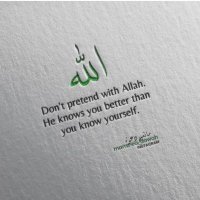 الله
Don't pretend with Allah.
He knows you better than
you know yourself.